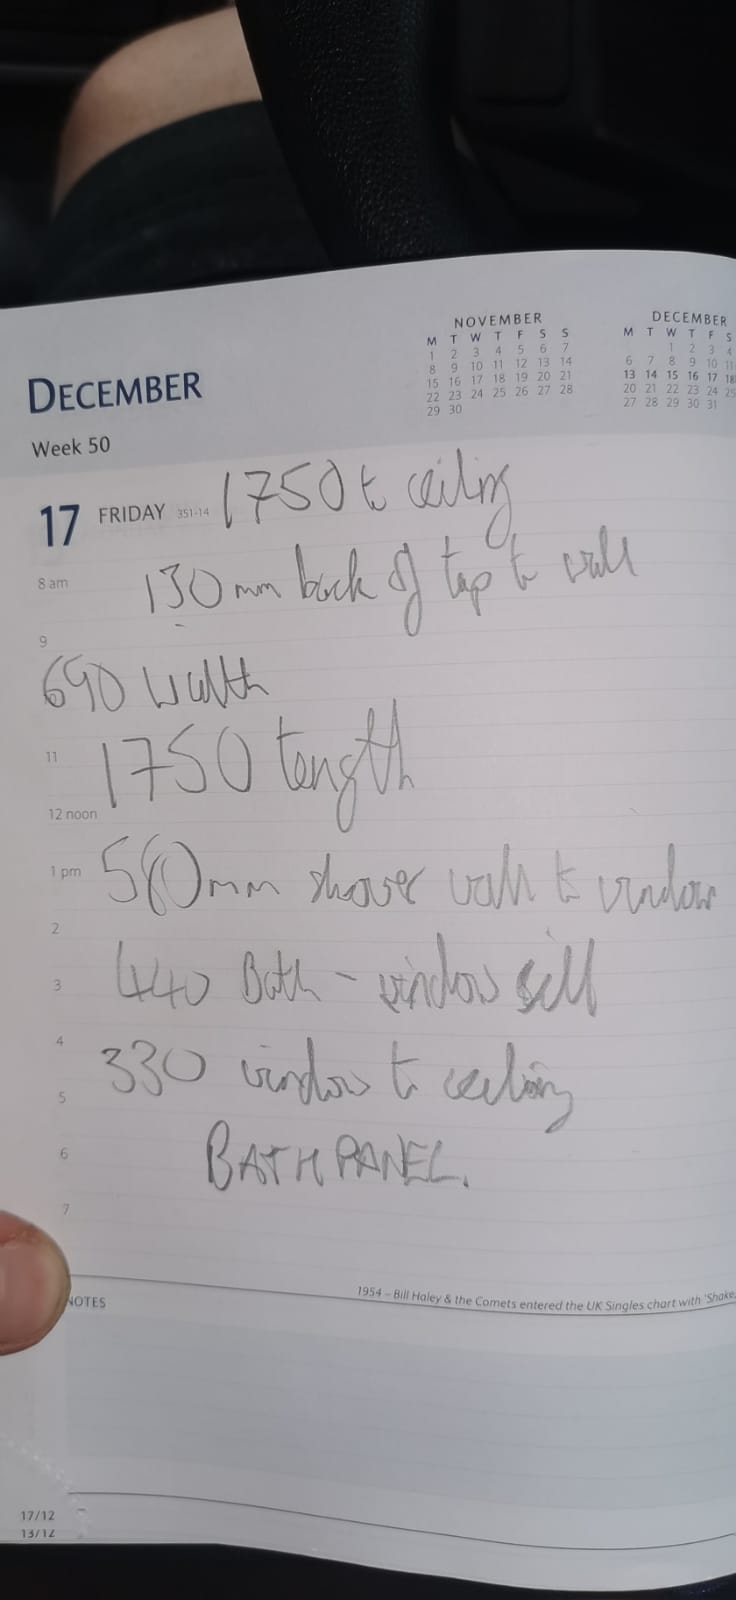 NOVEMBER
M T W T F S S
1 2 3 4 5 6 7
8 9 10 11 12 13 14
15 16 17 18 19 20 21
22 23 24 25 26 27 28
29 30
DECEMBER
M T W T F S
1 2 3 4
6 7 8 9 10 11
13 14 15 16 17 18
20 21 22 23 24 25
27 28 29 30 31
DECEMBER
Week 50
17 FRIDAY 351-14 1750 to ceiling
8 am 130mm back of tap to wall
9
690 width
11 1750 length
12 noon
1 pm 580mm shower wall to window
2
3 440 Bath - window sill
4
330 window to ceiling
5
6 BATH PANEL.
7
1954 – Bill Haley & the Comets entered the UK Singles chart with 'Shake,
NOTES
17/12
13/12